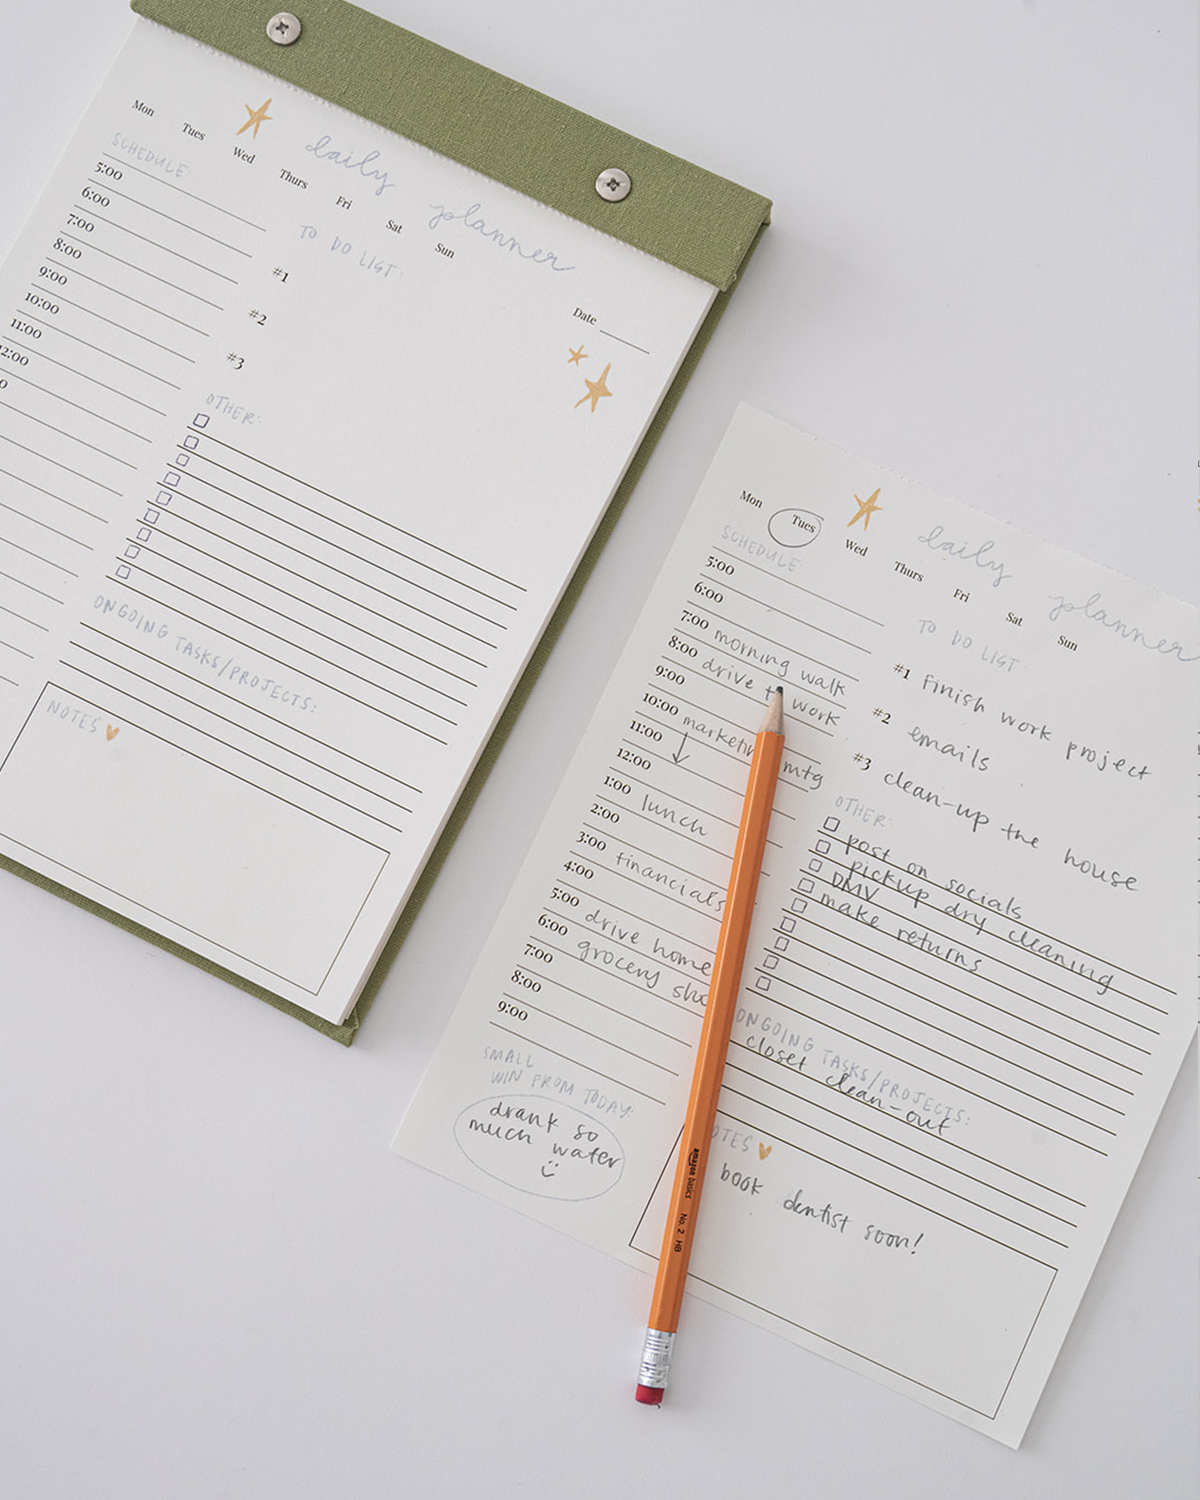 Mon Tues Wed Thurs Fri Sat Sun
daily planner
SCHEDULE:
5:00
6:00
7:00
8:00
9:00
10:00
11:00
2:00
0
TO DO LIST:
#1
#2
#3
Date
OTHER:
ONGOING TASKS/PROJECTS:
NOTES
Mon Tues Wed Thurs Fri Sat Sun
daily planner
SCHEDULE:
5:00
6:00
7:00 morning walk
8:00 drive to work
9:00
10:00 marketing mtg
11:00
12:00
1:00 lunch
2:00
3:00 financials
4:00
5:00 drive home
6:00 grocery sho
7:00
8:00
9:00
SMALL
WIN FROM TODAY:
drank so
much water
TO DO LIST:
#1 Finish work project
#2 emails
#3 clean-up the house
OTHER:
post on socials
pickup dry cleaning
DMV
make returns
ONGOING TASKS/PROJECTS:
closet clean-out
OTES
book dentist soon!
amazon basics No. 2 HB